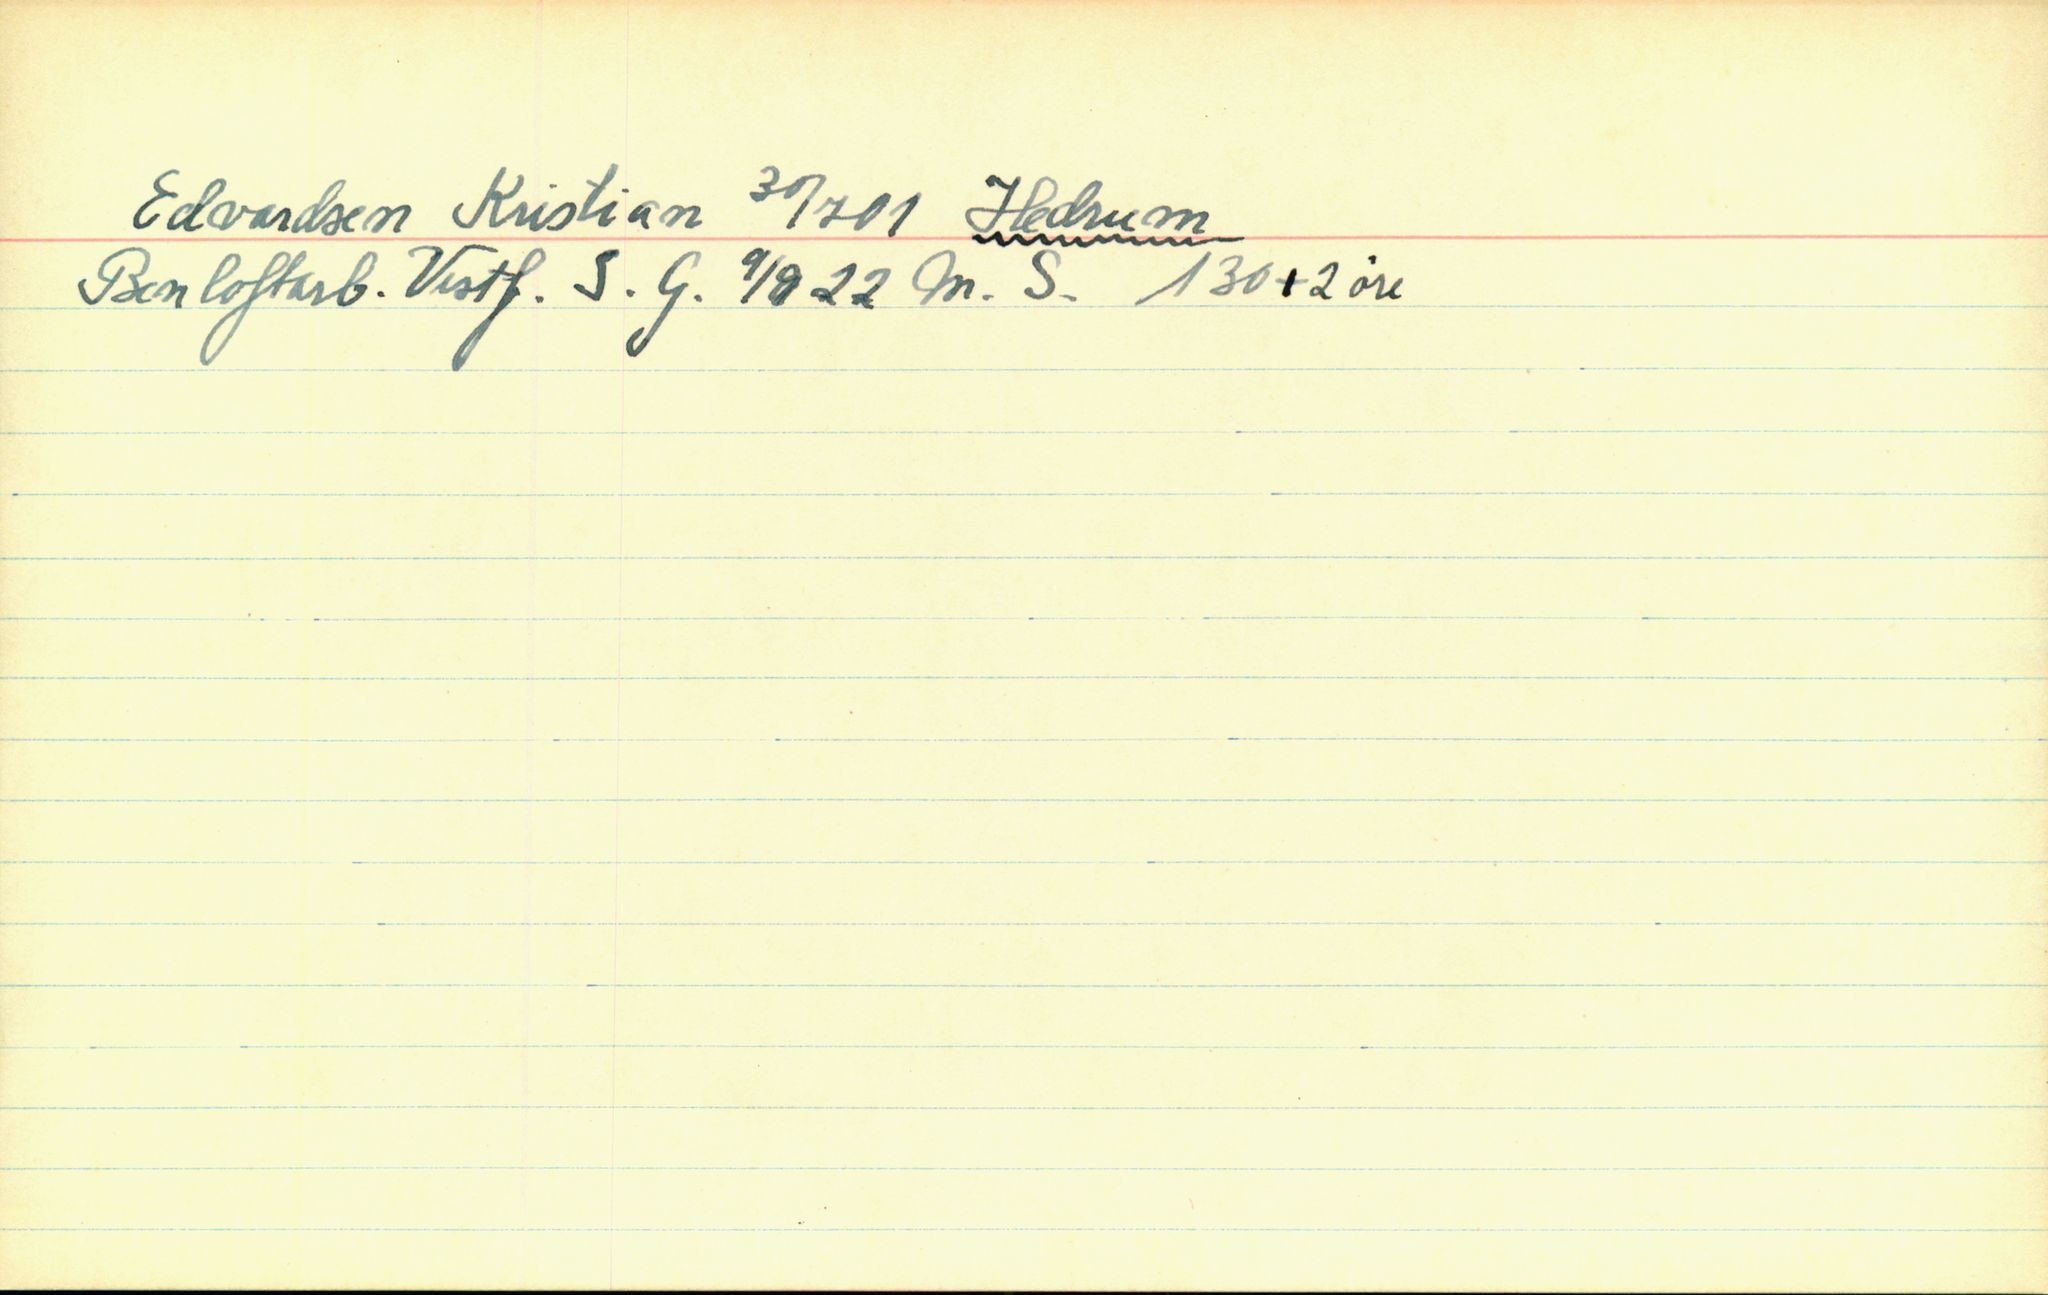 Edvardsen Kristian 30/701 Hedrum
Benloftarb. Vestf. S. G. 9/922 M. S. 130+2 öre